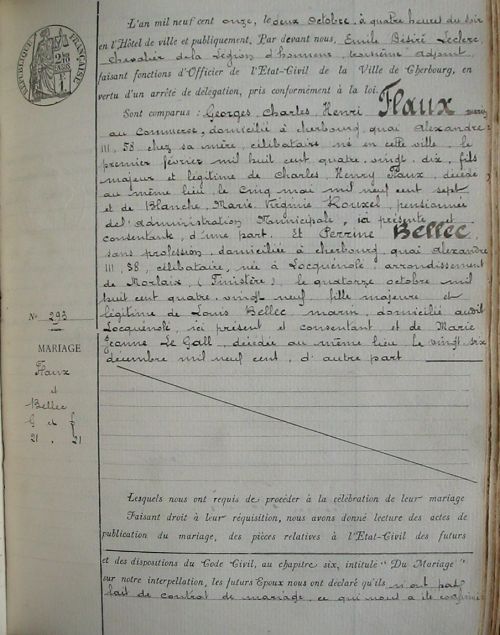 RÉPUBLIQUE FRANÇAISE
L'an mil neuf cent onze, le deux Octobre, à quatre heures du soir
en l'Hôtel de ville et publiquement. Par devant nous, Emile Désiré Leclerc,
chevalier de la Légion d'honneur, troisième adjoint
faisant fonctions d'Officier de l'Etat-Civil de la Ville de Cherbourg, en
vertu d'un arrêté de délégation, pris conformément à la loi.
Sont comparus : Georges Charles Henri Flaux
au Commerce, domicilié à Cherbourg, quai Alexandre
III, 58 chez sa mère, célibataire né en cette ville le
premier février mil huit cent quatre-vingt-dix, fils
majeur et légitime de Charles Henry Flaux, décédé
au même lieu le cinq mai mil neuf cent sept
et de Blanche Marie Virginie Rouxel, pensionnée
de l'administration Municipale, ici présente et
consentante, d'une part. Et Perrine Bellec
sans profession, domiciliée à Cherbourg, quai Alexandre
III, 58, célibataire, née à Locquénolé arrondissement
de Morlaix (Finistère) le quatorze octobre mil
huit cent quatre-vingt neuf fille majeure et
légitime de Louis Bellec marin, domicilié audit
Locquénolé, ici présent et consentant et de Marie
Jeanne Le Gall, décédée au même lieu le vingt six
décembre mil neuf cent, d'autre part
No 293
MARIAGE
Flaux
et
Bellec
G et
21 . 21
Lesquels nous ont requis de procéder à la célébration de leur mariage
Faisant droit à leur réquisition, nous avons donné lecture des actes de
publication du mariage, des pièces relatives à l'Etat-Civil des futurs
et des dispositions du Code Civil, au chapitre six, intitulé "Du Mariage"
sur notre interpellation, les futurs Epoux nous ont déclaré qu'ils n'ont pas
fait de contrat de mariage, ce qui nous a été confirmé